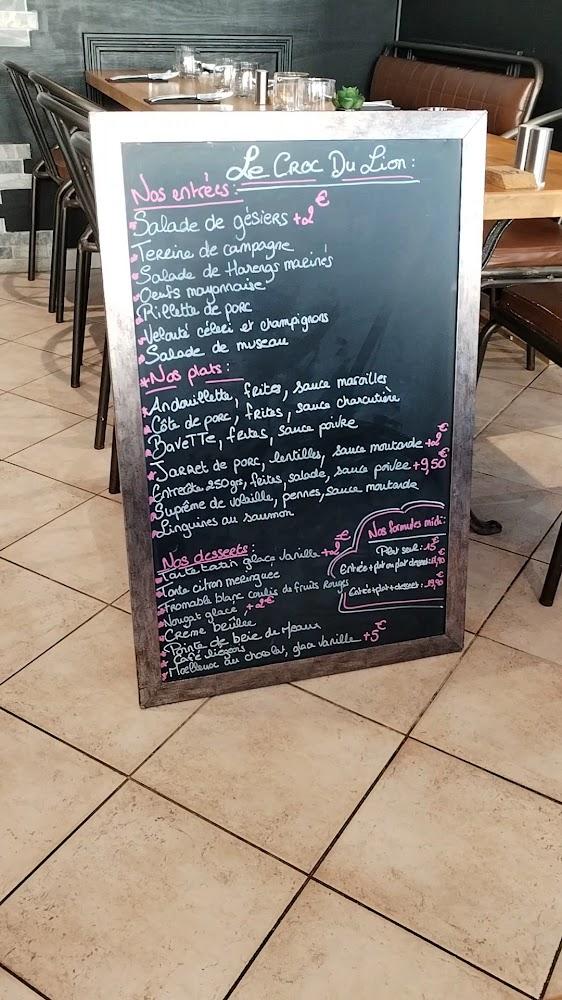 Le Croc Du Lion :
Nos entrées :
Salade de gésiers +2€
Terrine de campagne
Salade de Harengs marinés
Oeufs mayonnaise
Rillette de porc
Velouté céleri et champignons
Salade de museau
Nos plats :
Andouillette, frites, sauce maroilles
Côte de porc, frites, sauce charcutière
BaveTTe, frites, sauce poivre
Jarret de porc, lentilles, sauce moutarde +2€
Entrecôte 250grs, frites, salade, sauce poivre +9,50€
Suprême de volaille, pennes, sauce moutarde
Linguines au saumon
Nos desserts :
Tarte tatin glace vanille +2€
Tarte citron meringuée
Fromage blanc coulis de fruits Rouges
Nougat glacé, +2€
Crème brûlée
Pointe de brie de Meaux
Café liégeois
Moelleux au chocolat, glace vanille +5€
Nos formules midi :
Plat seul : 15€
Entrée + plat ou plat + dessert :
Entrée + plat + dessert : 19,90€